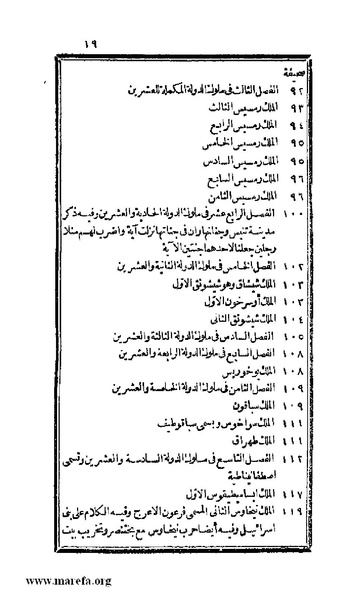 ١٩
صحيفة
٩٢ الفصل الثالث فى ملوك الدولة المكملة للعشرين
٩٣ الملك رمسيس الثالث
٩٤ الملك رمسيس الرابع
٩٥ الملك رمسيس الخامس
٩٥ الملك رمسيس السادس
٩٦ الملك رمسيس السابع
٩٦ الملك رمسيس الثامن
١٠٠ الفصل الرابع عشر فى ملوك الدولة الحادية والعشرين وفيه ذكر
مدينة تنيس وجناتها وان فى جناتها نزلت آية واضرب لهم مثلا
رجلين جعلنا لاحدهما جنتين الآية
١٠٢ الفصل الخامس فى ملوك الدولة الثانية والعشرين
١٠٣ الملك شيشاق وهو شيشونق الاول
١٠٣ الملك أوسرخون الاول
١٠٤ الملك شيشونق الثانى
١٠٥ الفصل السادس فى ملوك الدولة الثالثة والعشرين
١٠٨ الفصل السابع فى ملوك الدولة الرابعة والعشرين
١٠٨ الملك بوخوريس
١٠٩ الفصل الثامن فى ملوك الدولة الخامسة والعشرين
١٠٩ الملك سباقون
١١١ الملك سواخوس ويسمى سباقوطيف
١١١ الملك طهراق
١١٢ الفصل التاسع فى ملوك الدولة السادسة والعشرين وتسمى
١١٧ الملك ابساميطيقوس الاول
١١٩ الملك نيخاوس الثانى المسمى فرعون الاعرج وفيه الكلام على بنى
اسرائيل وفيه أيضا حرب نيخاوس مع بختنصر وتخريب بيت
www.marefa.org